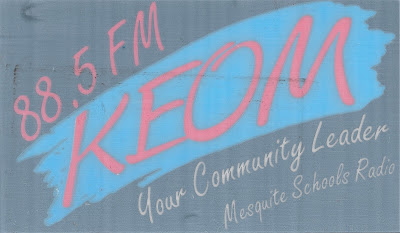 88.5 FM
KEOM
Your Community Leader
Mesquite Schools Radio